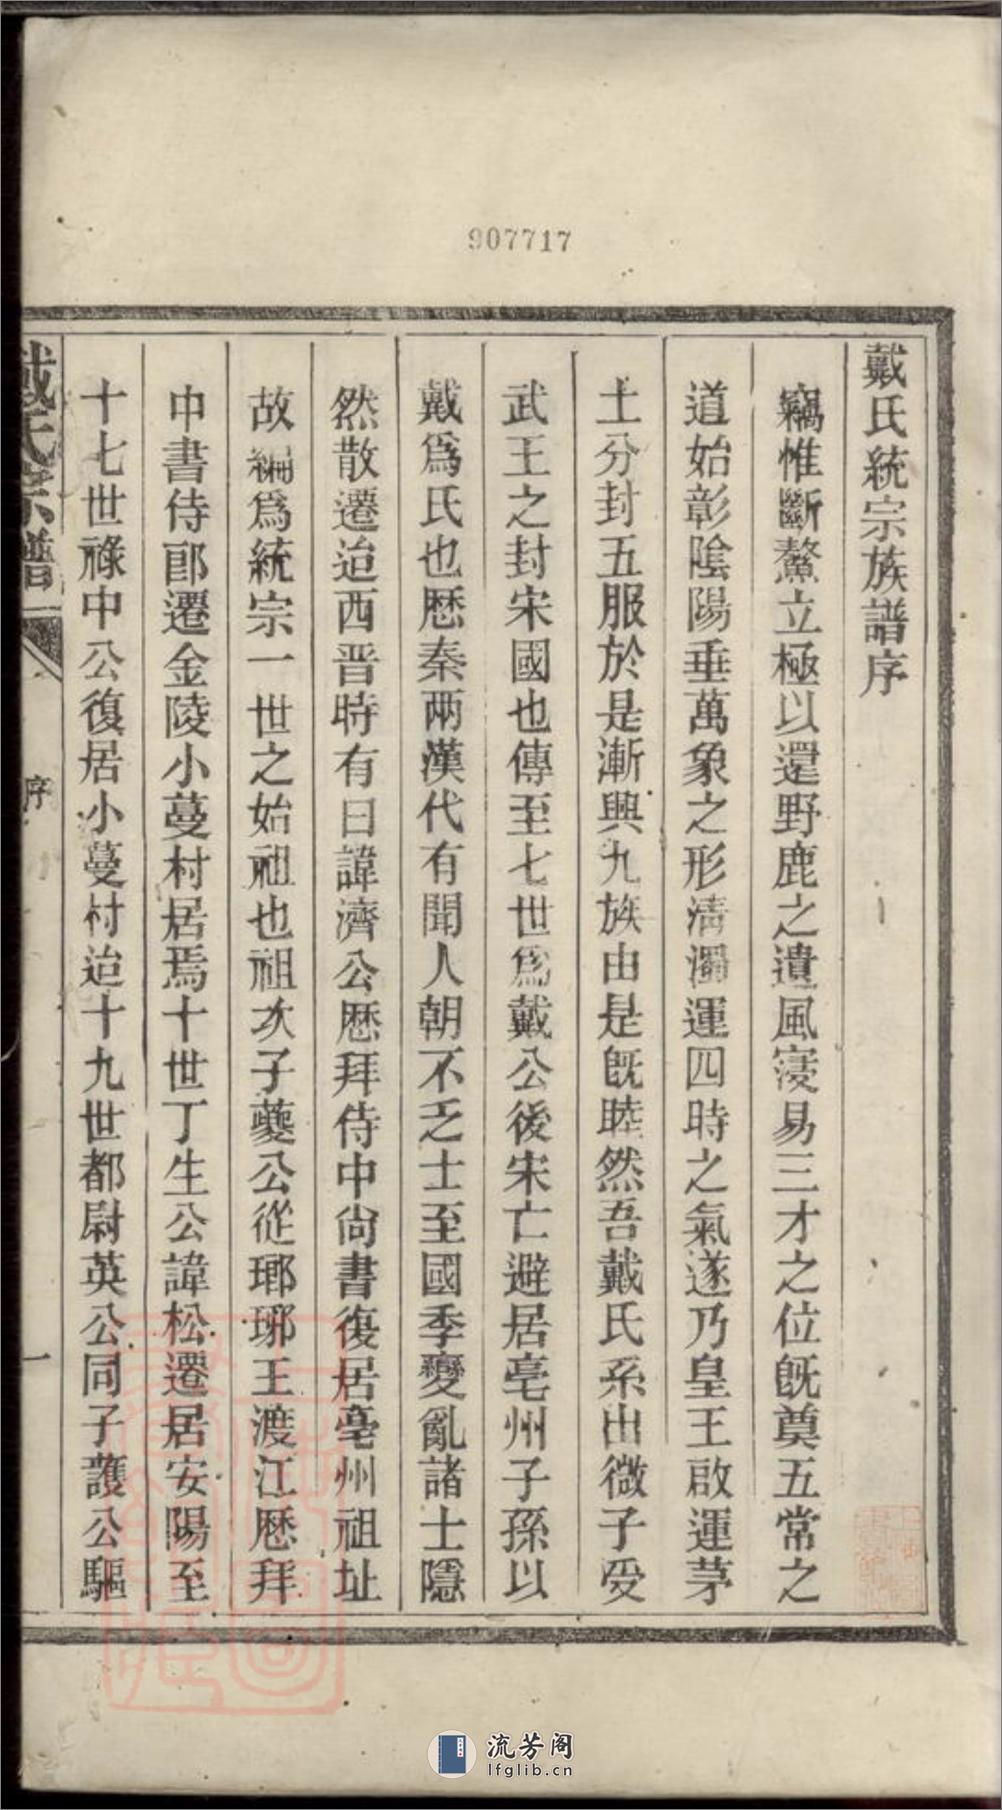 907717
戴氏統宗族譜序
竊惟斷鰲立極以還野鹿之遺風寖易三才之位旣奠五常之
道始彰陰陽垂萬象之形清濁運四時之氣遂乃皇王啟運茅
土分封五服於是漸興九族由是旣睦然吾戴氏系出微子受
武王之封宋國也傳至七世爲戴公後宋亡避居亳州子孫以
戴爲氏也歷秦兩漢代有聞人朝不乏士至國季變亂諸士隱
然散遷迨西晋時有曰諱濟公歷拜侍中尙書復居亳州祖址
故編爲統宗一世之始祖也祖次子夔公從瑯琊王渡江歷拜
中書侍郎遷金陵小蔓村居焉十世丁生公諱松遷居安陽至
十七世祿中公復居小蔓村迨十九世都尉英公同子護公驅
戴氏宗譜
序
一
流芳阁
lfglib.cn